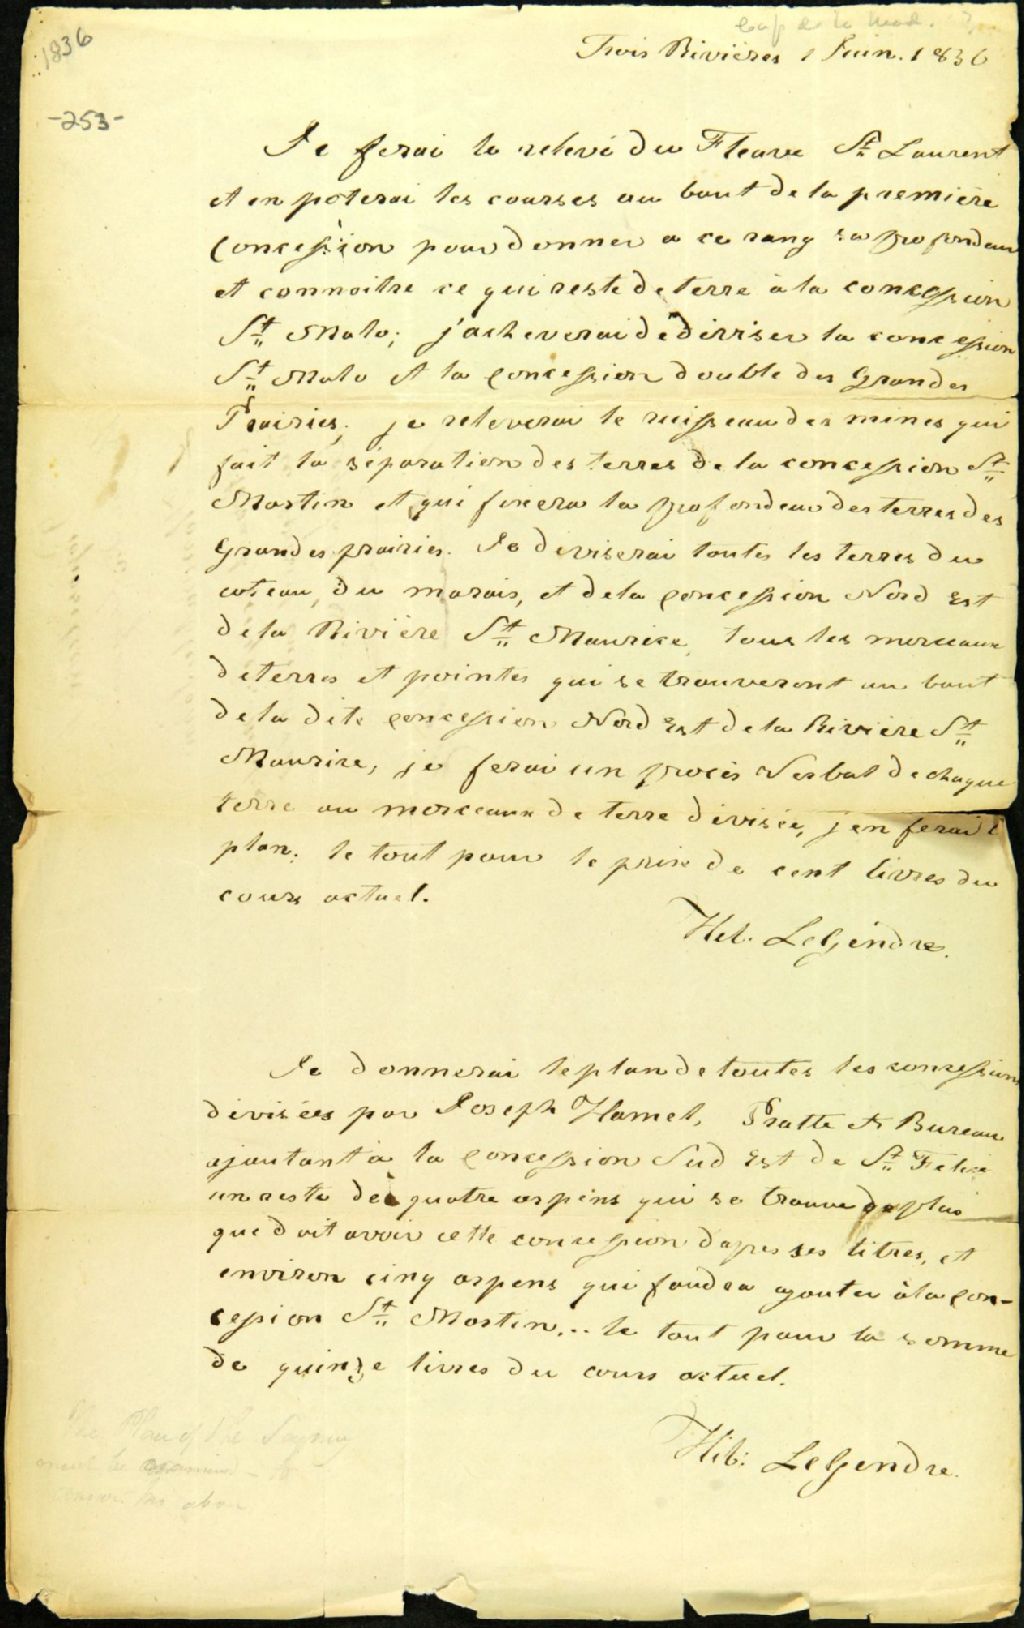 1836
Cap de la Mad.
Trois Rivières 1 Juin. 1836
-253-
Je ferai le relevé du Fleuve St. Laurent
et en poterai les courses au bout de la première
Concession pour donner a ce rang sa profondeur
et connoitre ce qui reste de terre à la concession
St. Malo; j'acheverai de diviser la concession
St. Malo et la Concession double des Grandes
Prairies; je releverai le ruisseau des mines qui
fait la séparation des terres de la concession St.
Martin et qui fixera la profondeur des terres des
Grandes prairies. Je diviserai toutes les terres du
coteau, du marais, et de la Concession Nord Est
de la Rivière St. Maurice, tous les morceaux
de terres et pointes qui se trouveront au bout
de la dite Concession Nord Est de la Rivière St.
Maurice, je ferai un procès Verbal de chaque
terre ou morceaux de terre divisée, j'en ferai l
plan. le tout pour le prix de cent livres du
cours actuel.
Heb. LeGendre.
Je donnerai le plan de toutes les concessions
divisées par Joseph Hamel, Pratte et Bureau
ajoutant à la Concession Sud Est de St. Felix
un reste de quatre arpens qui se trouve de plus
que doit avoir cette concession d'apres ses titres, et
environ cinq arpens qui faudra ajouter à la Con-
cession St. Martin... le tout pour la somme
de quinze livres du cours actuel.
Heb: LeGendre.
The Plan of the
must be examined - to
above